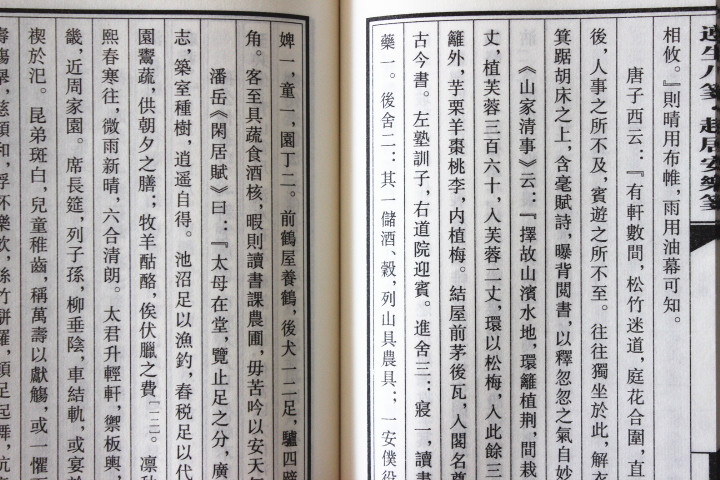 遵生八箋·起居安樂箋
相攸。』則晴用布帷，雨用油幕可知。
唐子西云：『有軒數間，松竹迷道，庭花合圍，直
後，人事之所不及，賓遊之所不至。往往獨坐於此，解衣
箕踞胡床之上，含毫賦詩，曝背閲書，以釋忽忽之氣自妙
《山家清事》云：『擇故山濱水地，環籬植荆，間栽
丈，植芙蓉三百六十，入芙蓉二丈，環以松梅，入此餘三
籬外，芋栗羊棗桃李，内植梅。結屋前茅後瓦，入閣名尊
古今書。左塾訓子，右道院迎賓。進舍三：寢一，讀書
藥一。後舍二：其一儲酒、穀，列山具農具；一安僕役
婢一，童一，園丁二。前鶴屋養鶴，後犬一二足，驢四蹄
角。客至具蔬食酒核，暇則讀書課農圃，毋苦吟以安天
潘岳《閑居賦》曰：『太母在堂，覽止足之分，廣
志，築室種樹，逍遥自得。池沼足以漁釣，春税足以代
園鬻蔬，供朝夕之膳；牧羊酤酪，俟伏臘之費〔一二〕。凛秋
熙春寒往，微雨新晴，六合清朗。太君升輕軒，禦板輿，
畿，近周家園。席長筵，列子孫，柳垂陰，車結軌，或宴於
禊於汜。昆弟斑白，兒童稚齒，稱萬壽以獻觴，或一懼而